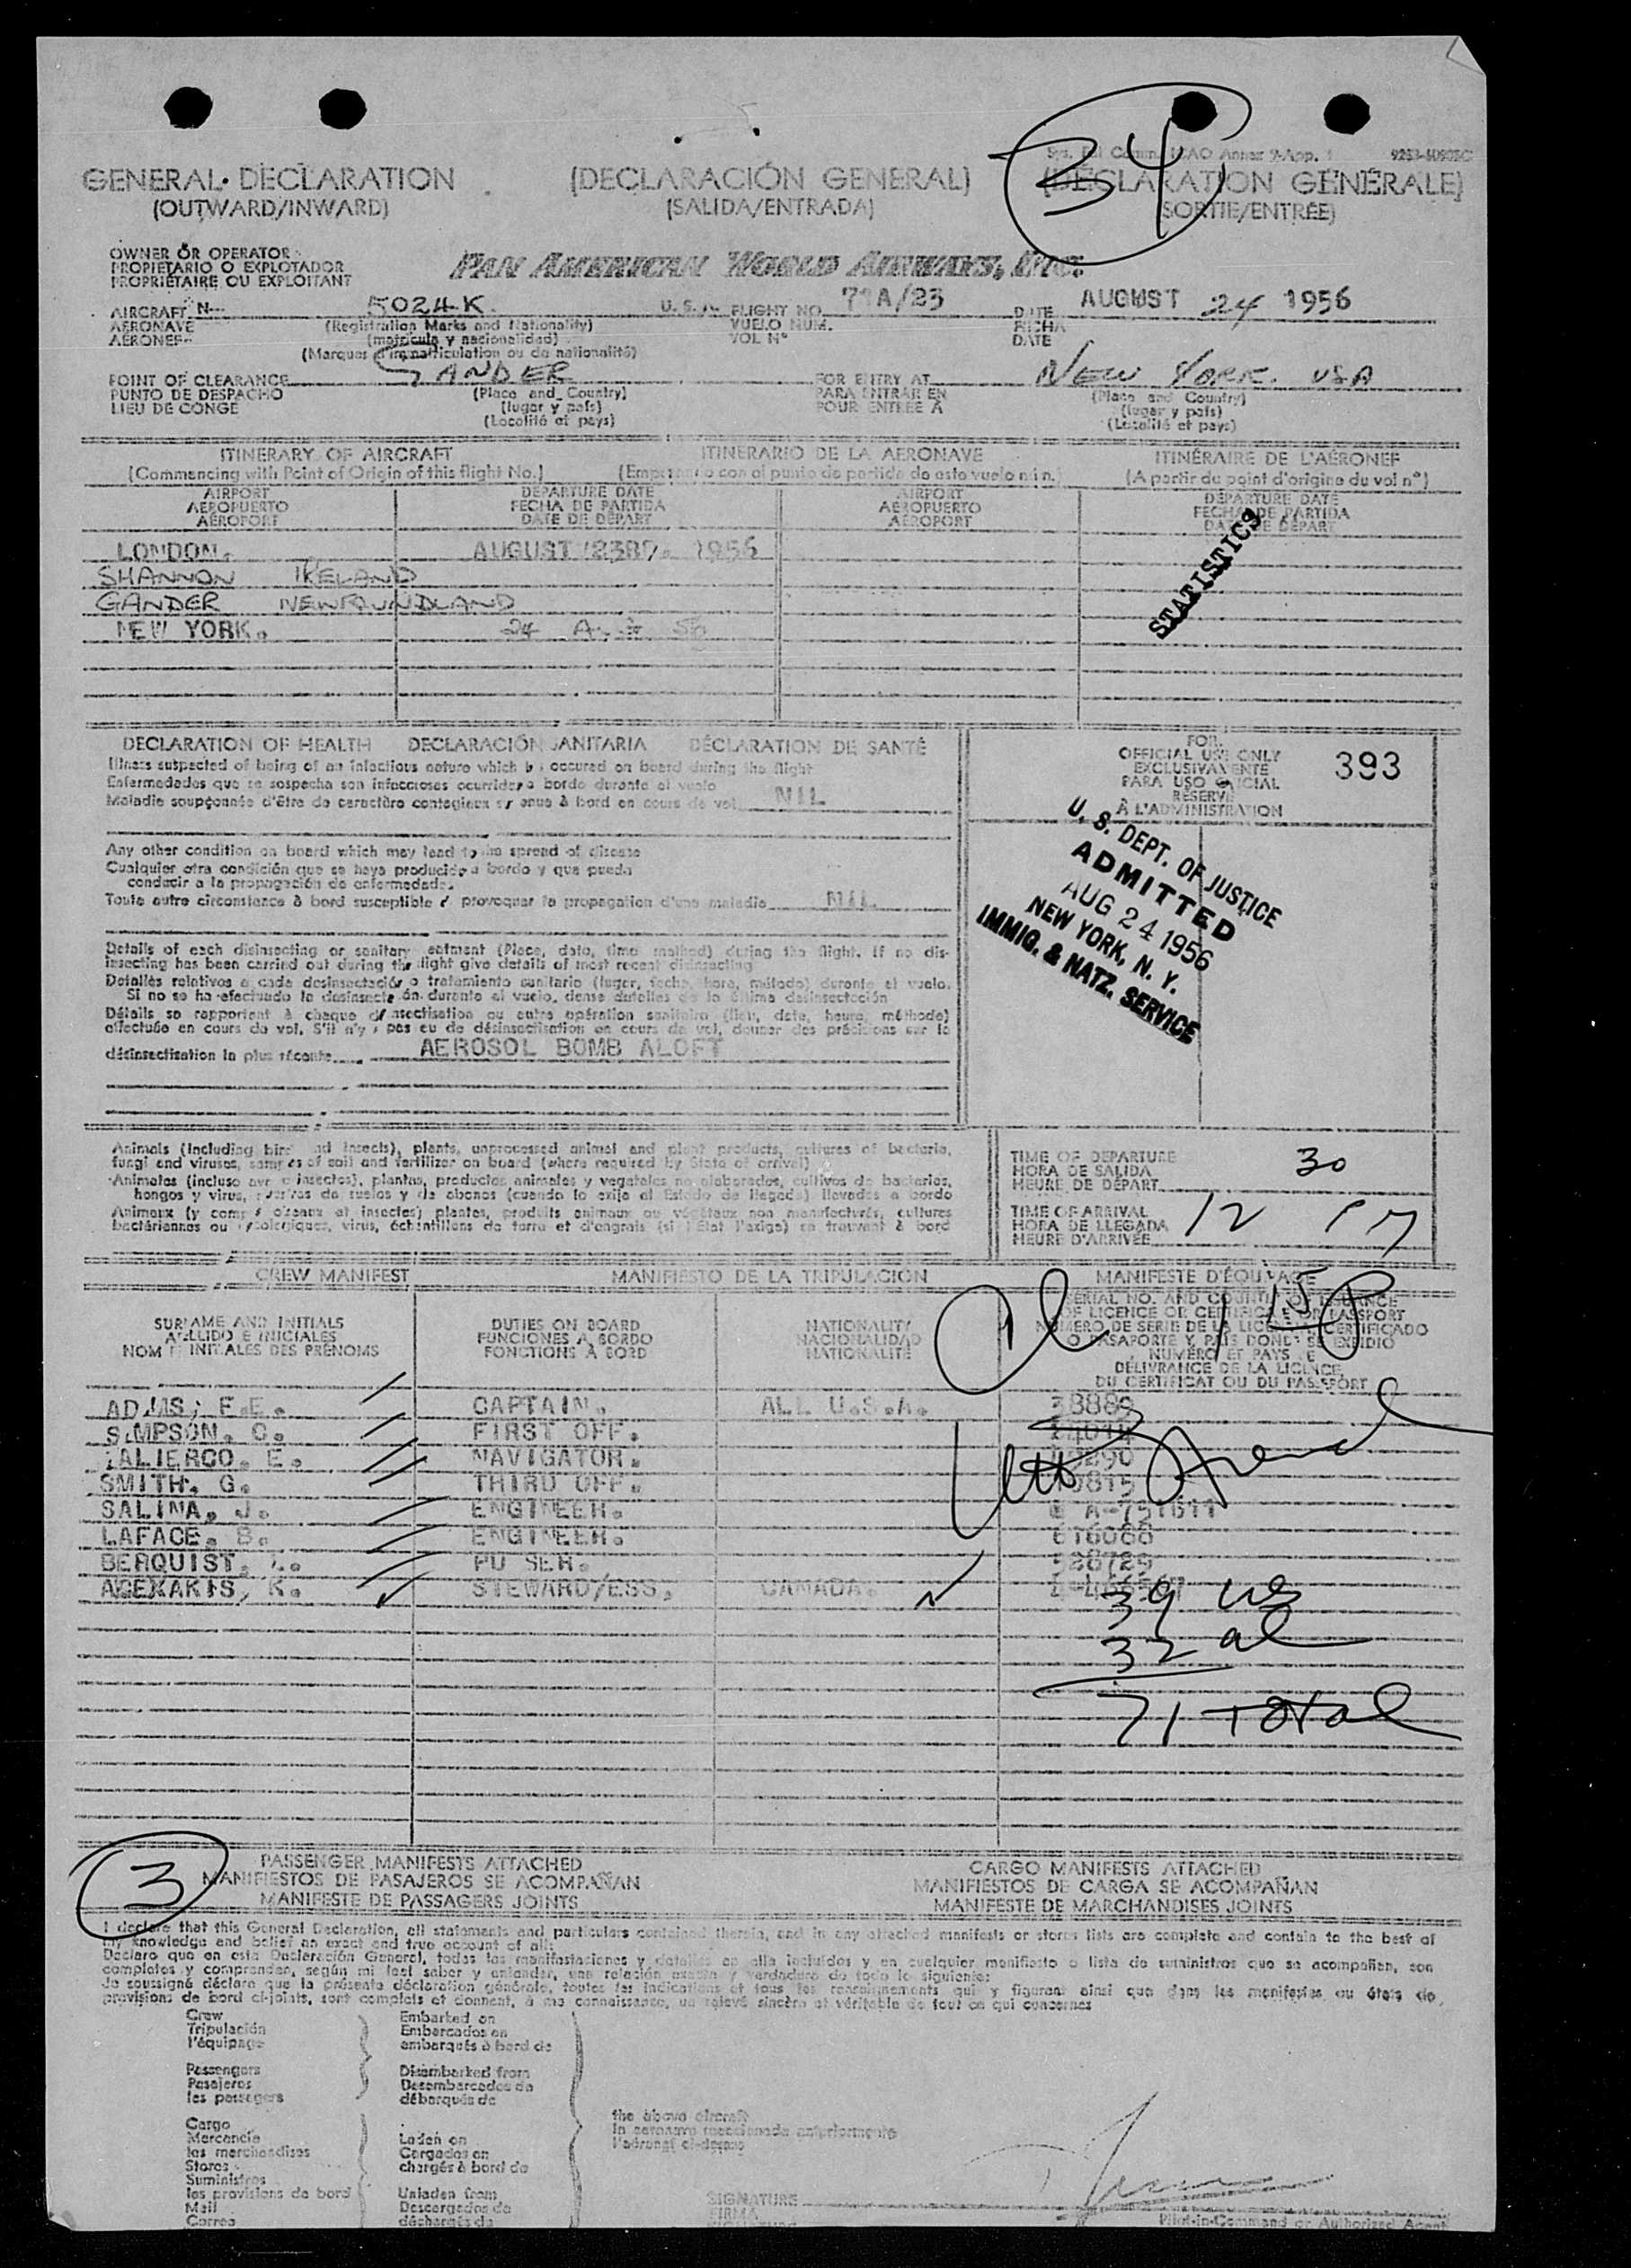 34
Annex 9-App. 1
GENERAL DECLARATION (DECLARACIÓN GENERAL) (DÉCLARATION GÉNÉRALE)
(OUTWARD/INWARD) (SALIDA/ENTRADA) (SORTIE/ENTRÉE)
OWNER OR OPERATOR
PROPIETARIO O EXPLOTADOR
PROPRIÉTAIRE OU EXPLOITANT
PAN AMERICAN WORLD AIRWAYS, INC.
AIRCRAFT N 5024K U.S.A. FLIGHT NO. 71A/23 DATE AUGUST 24 1956
AERONAVE (Registration Marks and Nationality) VUELO NUM. FECHA
AÉRONEF (matrícula y nacionalidad) VOL Nº DATE
(Marques d'immatriculation ou de nationalité)
POINT OF CLEARANCE GANDER FOR ENTRY AT NEW YORK. USA
PUNTO DE DESPACHO (Place and Country) PARA ENTRAR EN (Place and Country)
LIEU DE CONGÉ (lugar y país) POUR ENTRÉE À (lugar y país)
(Localité et pays) (Localité et pays)
ITINERARY OF AIRCRAFT ITINERARIO DE LA AERONAVE ITINÉRAIRE DE L'AÉRONEF
(Commencing with Point of Origin of this flight No.) (Empezando con el punto de partida de este vuelo núm.) (A partir du point d'origine du vol nº)
AIRPORT DEPARTURE DATE AIRPORT DEPARTURE DATE
AEROPUERTO FECHA DE PARTIDA AEROPUERTO FECHA DE PARTIDA
AÉROPORT DATE DE DÉPART AÉROPORT DATE DE DÉPART
LONDON. AUGUST 23RD. 1956
SHANNON IRELAND
GANDER NEWFOUNDLAND
NEW YORK. 24 56
STATISTICS
DECLARATION OF HEALTH DECLARACIÓN SANITARIA DÉCLARATION DE SANTÉ
Illness suspected of being of an infectious nature which has occured on board during the flight
Enfermedades que se sospecha son infecciosas ocurridas a bordo durante el vuelo
Maladie soupçonnée d'être de caractère contagieux survenue à bord en cours de vol NIL
Any other condition on board which may lead to the spread of disease
Cualquier otra condición que se haya producido a bordo y que pueda
conducir a la propagación de enfermedade.
Toute autre circonstance à bord susceptible de provoquer la propagation d'une maladie NIL
Details of each disinsecting or sanitary treatment (Place, date, time method) during the flight. If no dis-
insecting has been carried out during the flight give details of most recent disinsecting
Detalles relativos a cada desinsectación o tratamiento sanitario (lugar, fecha, hora, método) durante el vuelo.
Si no se ha efectuado la desinsectación durante el vuelo, dense detalles de la última desinsectación
Détails se rapportant à chaque désinsectisation ou autre opération sanitaire (lieu, date, heure, méthode)
effectuée en cours de vol. S'il n'y a pas eu de désinsectisation en cours de vol, donner des précisions sur la
désinsectisation la plus récente AEROSOL BOMB ALOFT
FOR
OFFICIAL USE ONLY 393
EXCLUSIVAMENTE
PARA USO OFICIAL
RÉSERVÉ
À L'ADMINISTRATION
U. S. DEPT. OF JUSTICE
ADMITTED
AUG 24 1956
NEW YORK, N. Y.
IMMIG. & NATZ. SERVICE
Animals (including birds and insects), plants, unprocessed animal and plant products, cultures of bacteria,
fungi and viruses, samples of soil and fertilizer on board (where required by State of arrival)
Animales (incluso aves e insectos), plantas, productos animales y vegetales no elaborados, cultivos de bacterias,
hongos y virus, muestras de suelos y de abonos (cuando lo exija el Estado de llegada) llevados a bordo
Animaux (y compris oiseaux et insectes) plantes, produits animaux ou végétaux non manufacturés, cultures
bactériennes ou mycologiques, virus, échantillons de terre et d'engrais (si l'État l'exige) se trouvant à bord
TIME OF DEPARTURE
HORA DE SALIDA 30
HEURE DE DÉPART
TIME OF ARRIVAL
HORA DE LLEGADA 12 17
HEURE D'ARRIVÉE
CREW MANIFEST MANIFIESTO DE LA TRIPULACION MANIFESTE D'ÉQUIPAGE
SURNAME AND INITIALS DUTIES ON BOARD NATIONALITY SERIAL NO. AND COUNTRY OF ISSUANCE
APELLIDO E INICIALES FUNCIONES A BORDO NACIONALIDAD OF LICENCE OR CERTIFICATE OR PASSPORT
NOM ET INITIALES DES PRÉNOMS FONCTIONS À BORD NATIONALITÉ NÚMERO DE SERIE DE LA LICENCIA CERTIFICADO
O PASAPORTE Y PAÍS DONDE SE EXPIDIÓ
NUMÉRO ET PAYS DE
DÉLIVRANCE DE LA LICENCE,
DU CERTIFICAT OU DU PASSEPORT
15
ADAMS, F.E. CAPTAIN. ALL U.S.A. 38889
SIMPSON. C. FIRST OFF.
E. NAVIGATOR.
SMITH. G. THIRD OFF.
SALINA, J. ENGINEER.
LAFACE. B. ENGINEER. 616088
BERQUIST, PURSER.
K. STEWARD/ESS. CANADA.
39 US
32 al
71 Total
3
PASSENGER MANIFESTS ATTACHED CARGO MANIFESTS ATTACHED
MANIFIESTOS DE PASAJEROS SE ACOMPAÑAN MANIFIESTOS DE CARGA SE ACOMPAÑAN
MANIFESTE DE PASSAGERS JOINTS MANIFESTE DE MARCHANDISES JOINTS
I declare that this General Declaration, all statements and particulars contained therein, and in any attached manifests or stores lists are complete and contain to the best of
my knowledge and belief an exact and true account of all:
Declaro que en esta Declaración General, todas las manifestaciones y detalles en ella incluidos y en cualquier manifiesto o lista de suministros que se acompañen, son
completos y comprenden, según mi leal saber y entender, una relación exacta y verdadera de todo lo siguiente:
Je soussigné déclare que la présente déclaration générale, toutes les indications et tous les renseignements qui y figurent ainsi que dans les manifestes ou états de
provisions de bord ci-joints, sont complets et donnent, à ma connaissance, un relevé sincère et véritable de tout ce qui concerne:
Crew Embarked on
Tripulación Embarcados en
l'équipage embarqués à bord de
Passengers Disembarked from
Pasajeros Desembarcados de
les passagers débarqués de
the above aircraft
la aeronave mencionada anteriormente
l'aéronef ci-dessus
Cargo
Mercancía Laden on
les merchandises Cargados en
Stores chargés à bord de
Suministros
les provisions de bord Unladen from
Mail Descargados de
Correo déchargés de
SIGNATURE
FIRMA
Pilot-in-Command or Authorized Agent